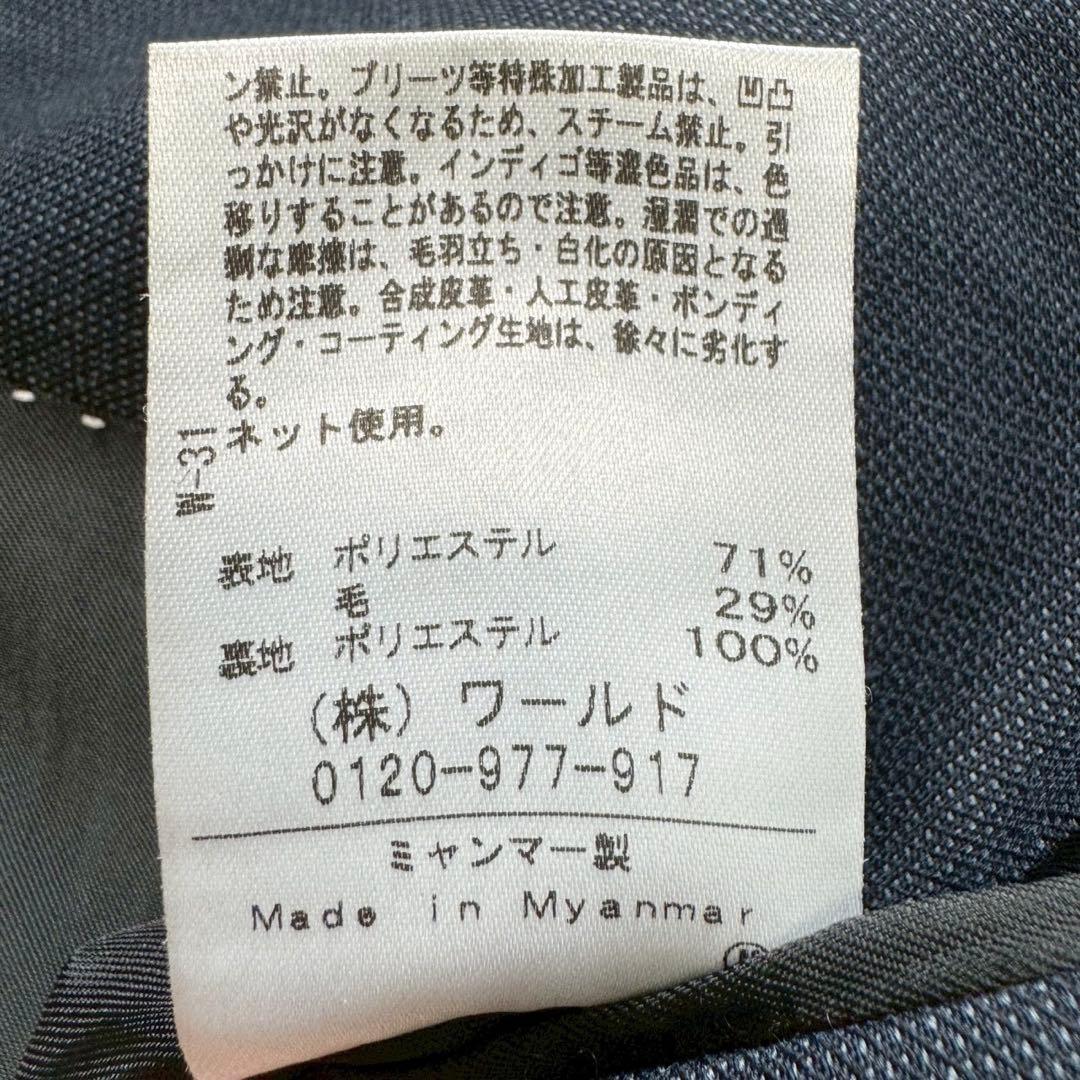 ン禁止。プリーツ等特殊加工製品は、凹凸
や光沢がなくなるため、スチーム禁止。引
っかけに注意。インディゴ等濃色品は、色
移りすることがあるので注意。湿潤での過
剰な摩擦は、毛羽立ち・白化の原因となる
ため注意。合成皮革・人工皮革・ボンディ
ング・コーティング生地は、徐々に劣化す
る。
ネット使用。
W-31
表地 ポリエステル 71%
毛 29%
裏地 ポリエステル 100%
(株) ワールド
0120-977-917
ミャンマー製
Made in Myanmar